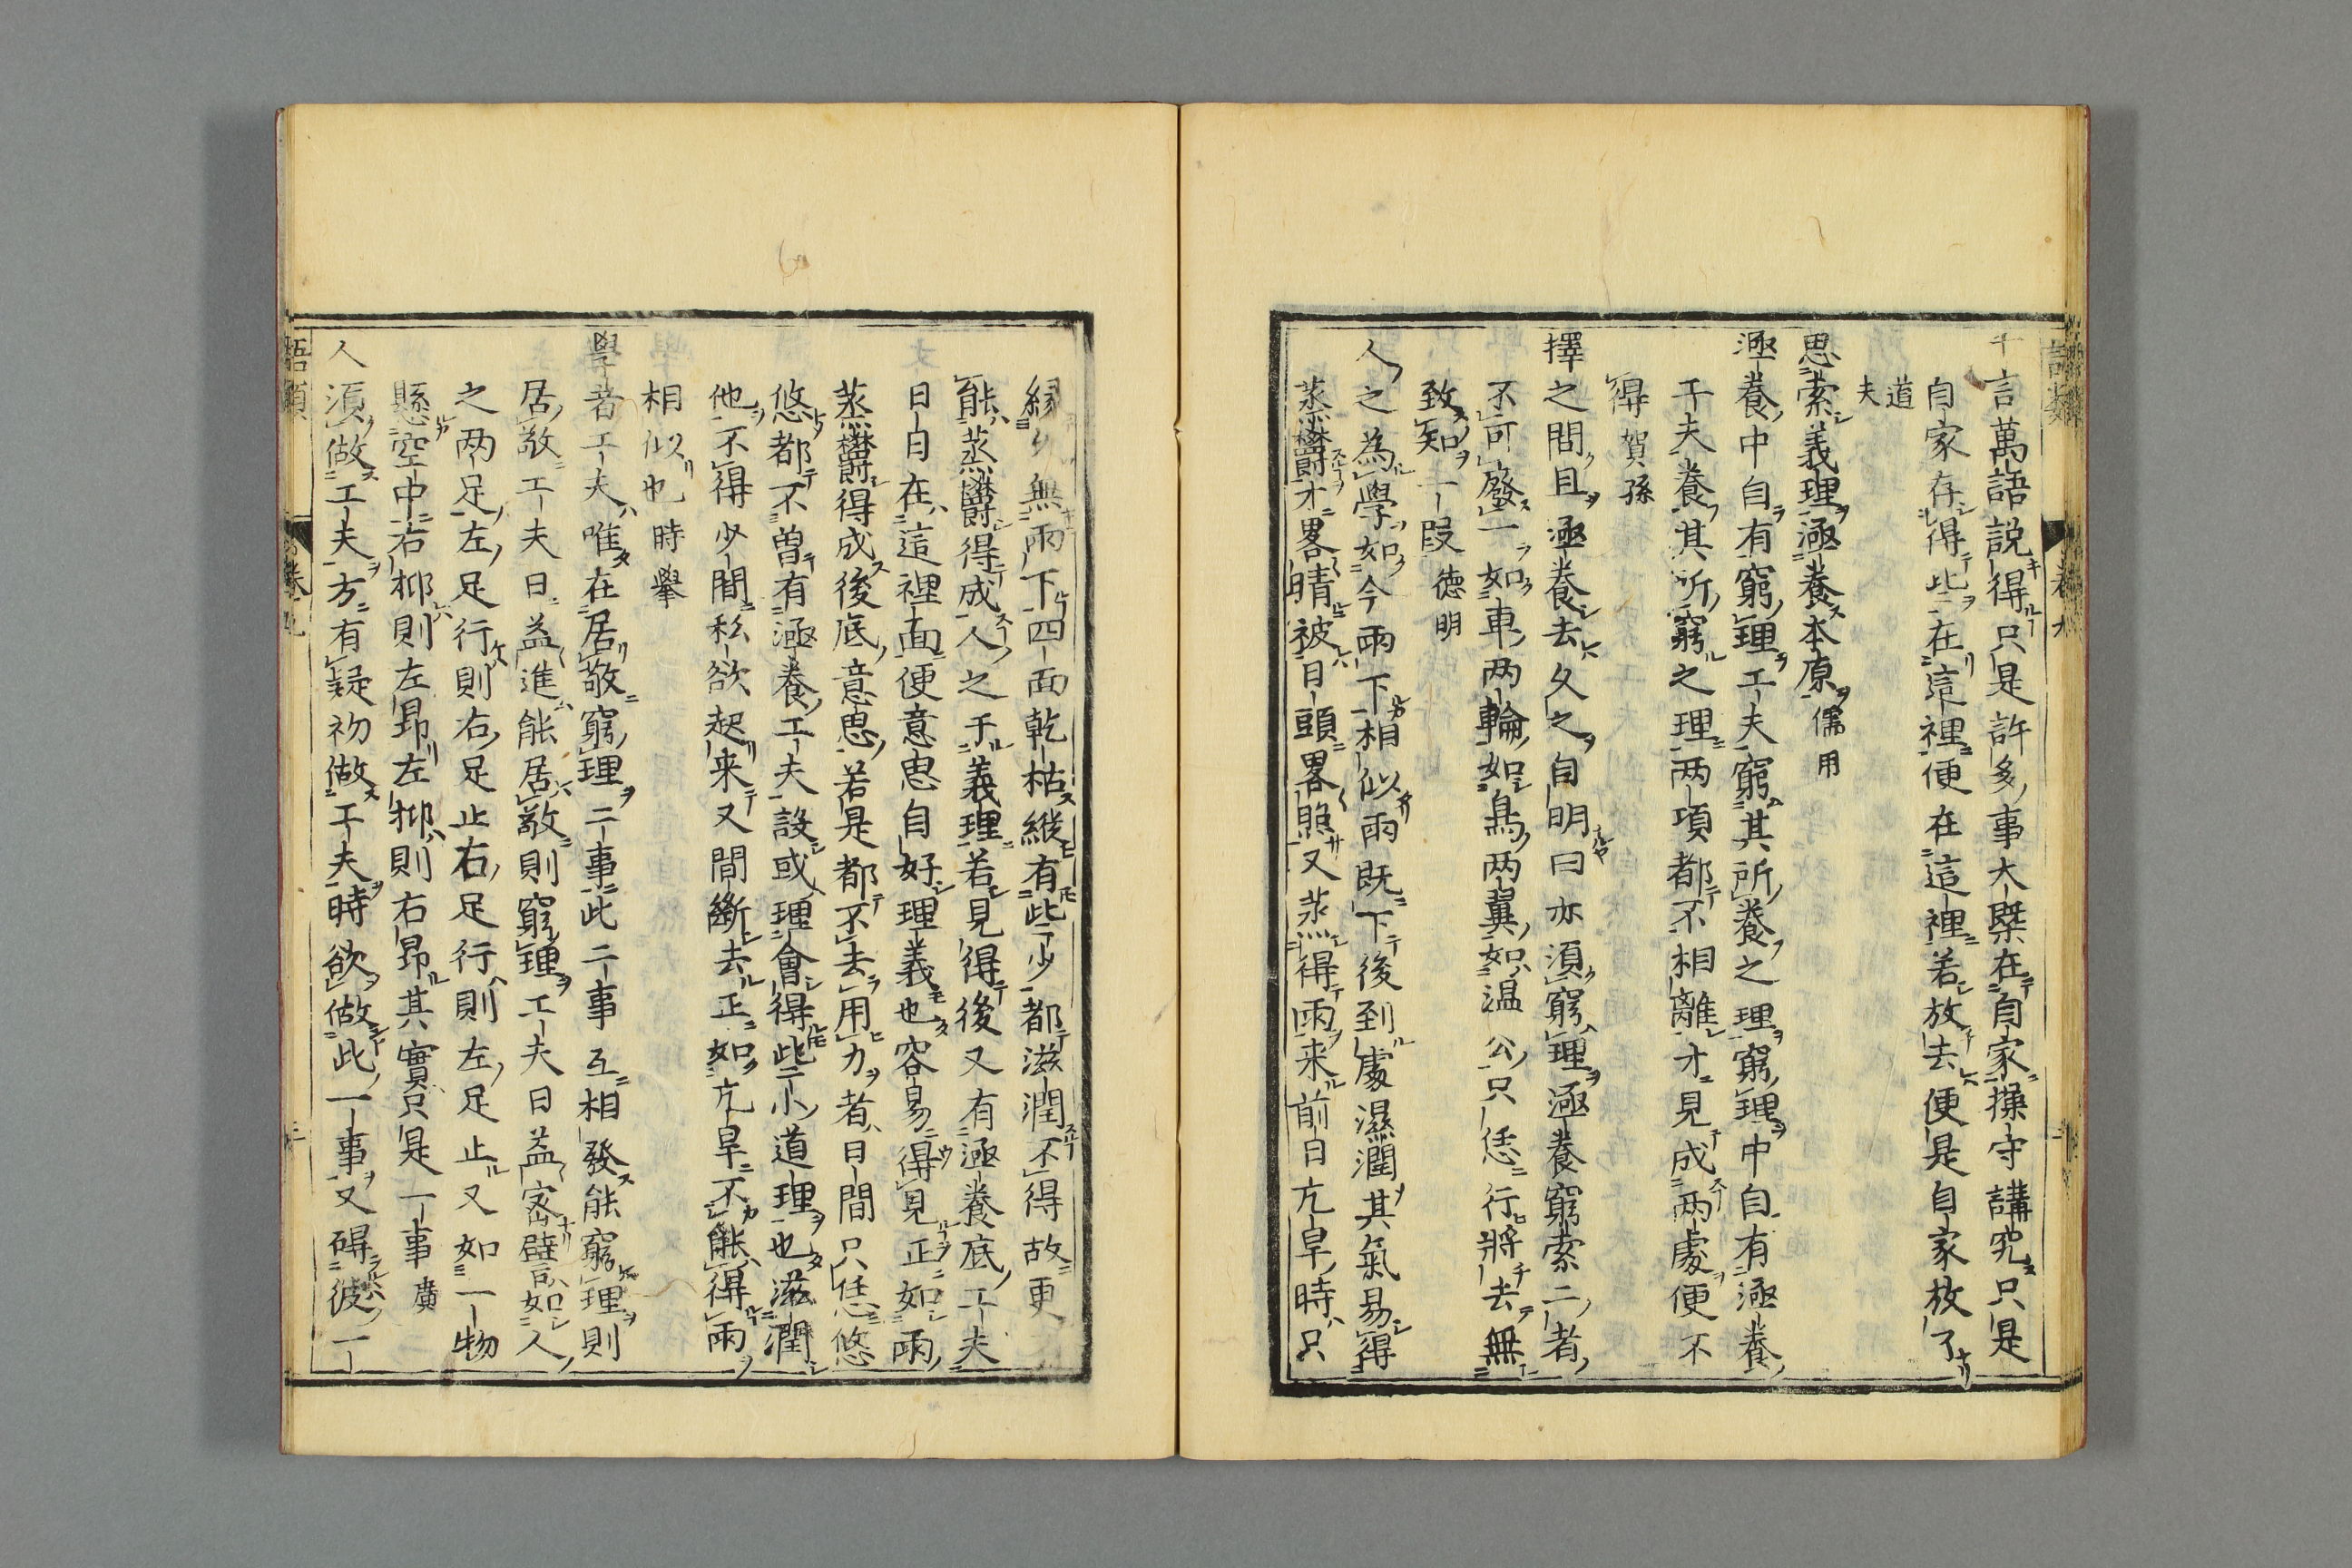 千言萬語説得只是許多事大槩在自家操守講究只是
自家存得些在這裡便在這裡若放去便是自家放了
道夫
思索義理涵養本原儒用
涵養中自有窮理工夫窮其所養之理窮理中自有涵養
工夫養其所窮之理两項都不相離才見成两處便不
得賀孫
擇之問且涵養去久之自明曰亦須窮理涵養窮索二者
不可廢一如車两輪如鳥两翼如温公只恁行將去無
致知一段德明
人之為學如今雨下相似雨既下後到處濕潤其氣易得
蒸欝才畧晴被日頭畧照又蒸得雨来前日亢旱時只
縁久無雨下四面乾枯縦有些少都滋潤不得故更
能蒸欝得成人之于義理若見得後又有涵養底工夫
日日在這裡面便意思自好理義也容易得見正如雨
蒸欝得成後底意思若是都不去用力者日間只恁悠
悠都不曽有涵養工夫設或理會得些小道理也滋潤
他不得少間私欲起来又間斷去正如亢旱不能得雨
相似也時擧
學者工夫唯在居敬窮理二事此二事互相發能窮理則
居敬工夫日益進能居敬則窮理工夫日益宻譬如人
之两足左足行則右足止右足行則左足止又如一物
懸空中右抑則左昂左抑則右昂其實只是一事廣
人須做工夫方有疑初做工夫時欲做此一事又碍彼一
語類
卷九